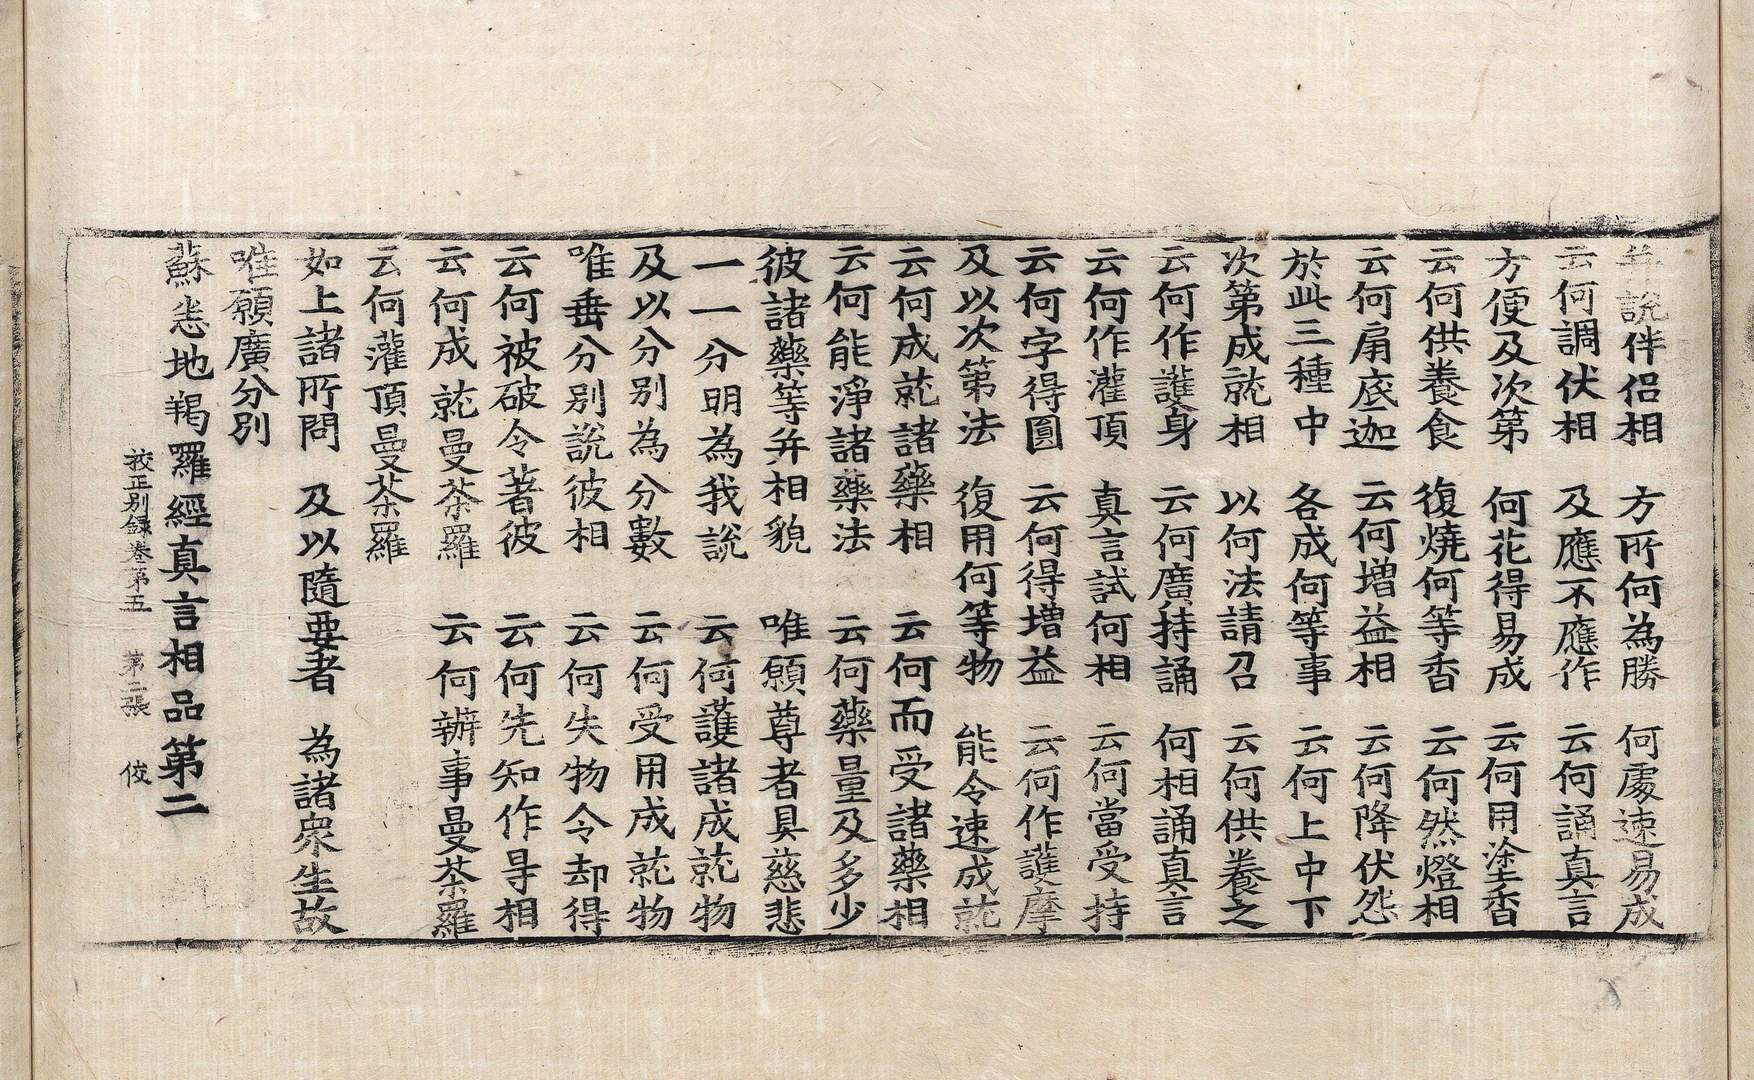 并說伴侶相　方所何為勝　何處速易成
云何調伏相　及應不應作　云何誦真言
方便及次第　何花得易成　云何用塗香
云何供養食　復燒何等香　云何然燈相
云何扇底迦　云何增益相　云何降伏怨
於此三種中　各成何等事　云何上中下
次第成就相　以何法請召　云何供養之
云何作護身　云何廣持誦　何相誦真言
云何作灌頂　真言試何相　云何當受持
云何字得圓　云何得增益　云何作護摩
及以次第法　復用何等物　能令速成就
云何成就諸藥相　云何而受諸藥相
云何能淨諸藥法　云何藥量及多少
彼諸藥等并相貌　唯願尊者具慈悲
一一分明為我說　云何護諸成就物
及以分別為分數　云何受用成就物
唯垂分別說彼相　云何失物令却得
云何被破令著彼　云何先知作㝵相
云何成就曼荼羅　云何辦事曼荼羅
云何灌頂曼荼羅
如上諸所問　及以隨要者　為諸衆生故
唯願廣分別
蘇悉地羯羅經真言相品第二
校正別録卷第五　第二張　俊